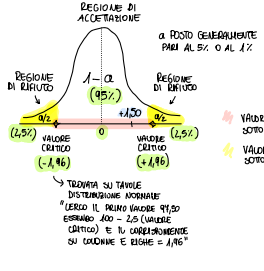 REGIONE DI
ACCETTAZIONE
α POSTO GENERALMENTE
PARI AL 5% O AL 1%
REGIONE
DI RIFIUTO
1-α
(95%)
REGIONE
DI RIFIUTO
+1,50
α/2
α/2
(2,5%)
VALORE
CRITICO
(-1,96)
0
VALORE
CRITICO
(+1,96)
(2,5%)
VALORE
SOTTO
VALORE
SOTTO
TROVATA SU TAVOLE
DISTRIBUZIONE NORMALE
"CERCO IL PRIMO VALORE 97,50
ESSENDO 100 - 2,5 (VALORE
CRITICO) E IL CORRISPONDENTE
SU COLONNE E RIGHE = 1,96"